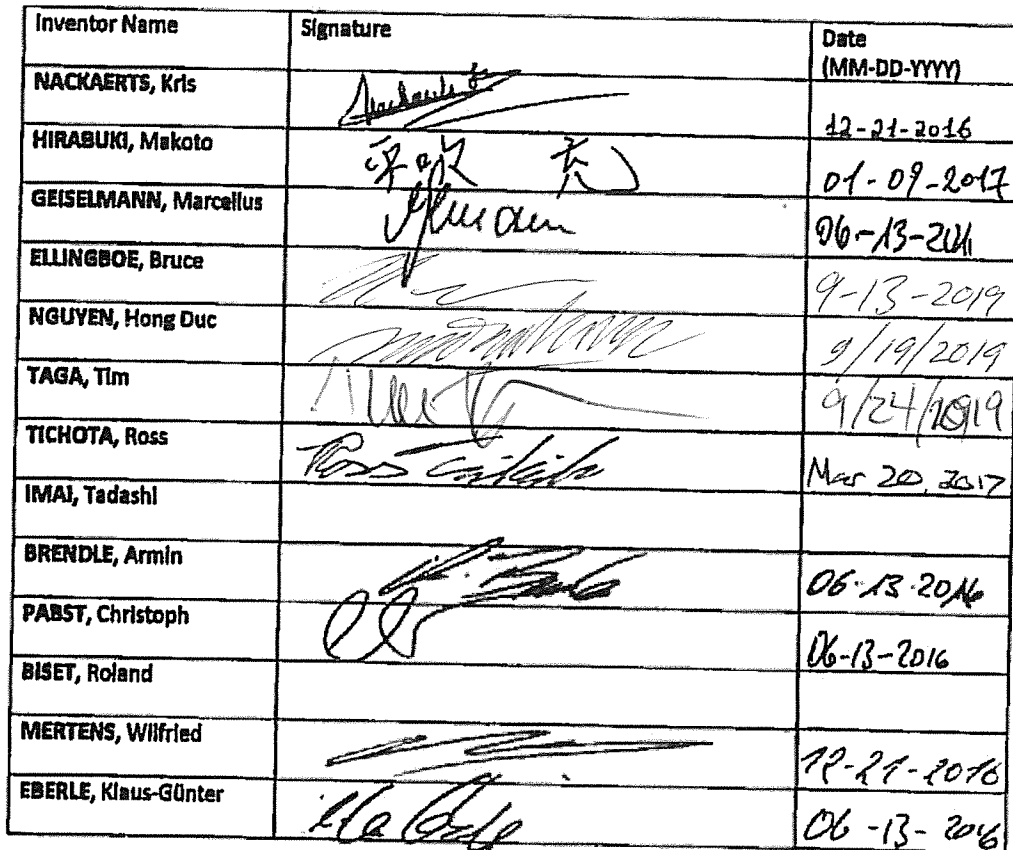 Inventor Name Signature Date
(MM-DD-YYYY)
NACKAERTS, Kris 12-21-2016
HIRABUKI, Makoto 平吹 亮 01-09-2017
GEISELMANN, Marcellus 06-13-
ELLINGBOE, Bruce 9-13-2019
NGUYEN, Hong Duc 9/19/2019
TAGA, Tim 9/24/2019
TICHOTA, Ross Ross Mar 20, 2017
IMAI, Tadashi
BRENDLE, Armin 06-13-2016
PABST, Christoph 06-13-2016
BISET, Roland
MERTENS, Wilfried 12-21-2016
EBERLE, Klaus-Günter 06-13-2016